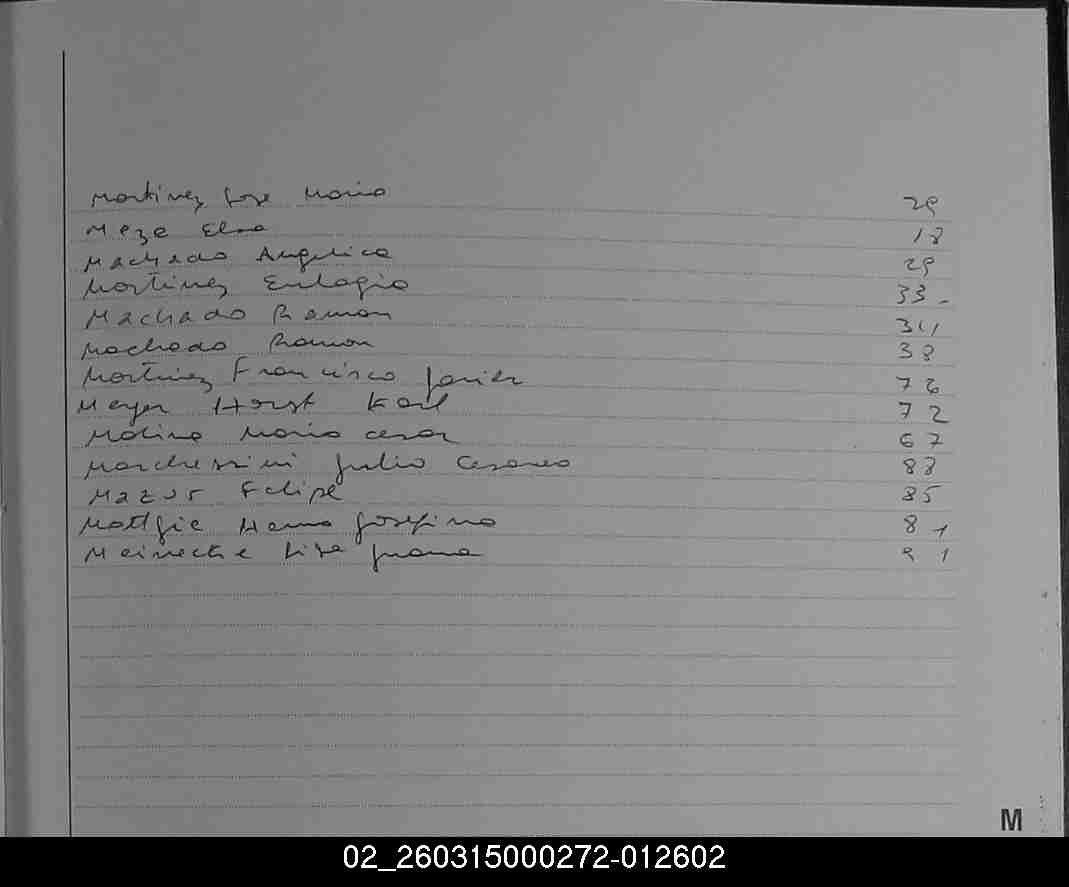 Martinez Jose Maria 29
Meza Elsa 18
Machado Angelica 29
Martinez Eulogio 33
Machado Ramon 34
Machado Ramon 38
Martinez Francisco Javier 76
Meyer Horst Karl 72
Molina Mario Cesar 67
Marchessini Julio Cesareo 88
Mazur Felipe 85
Josefina 81
Meinecke Juana 91
M
02_260315000272-012602